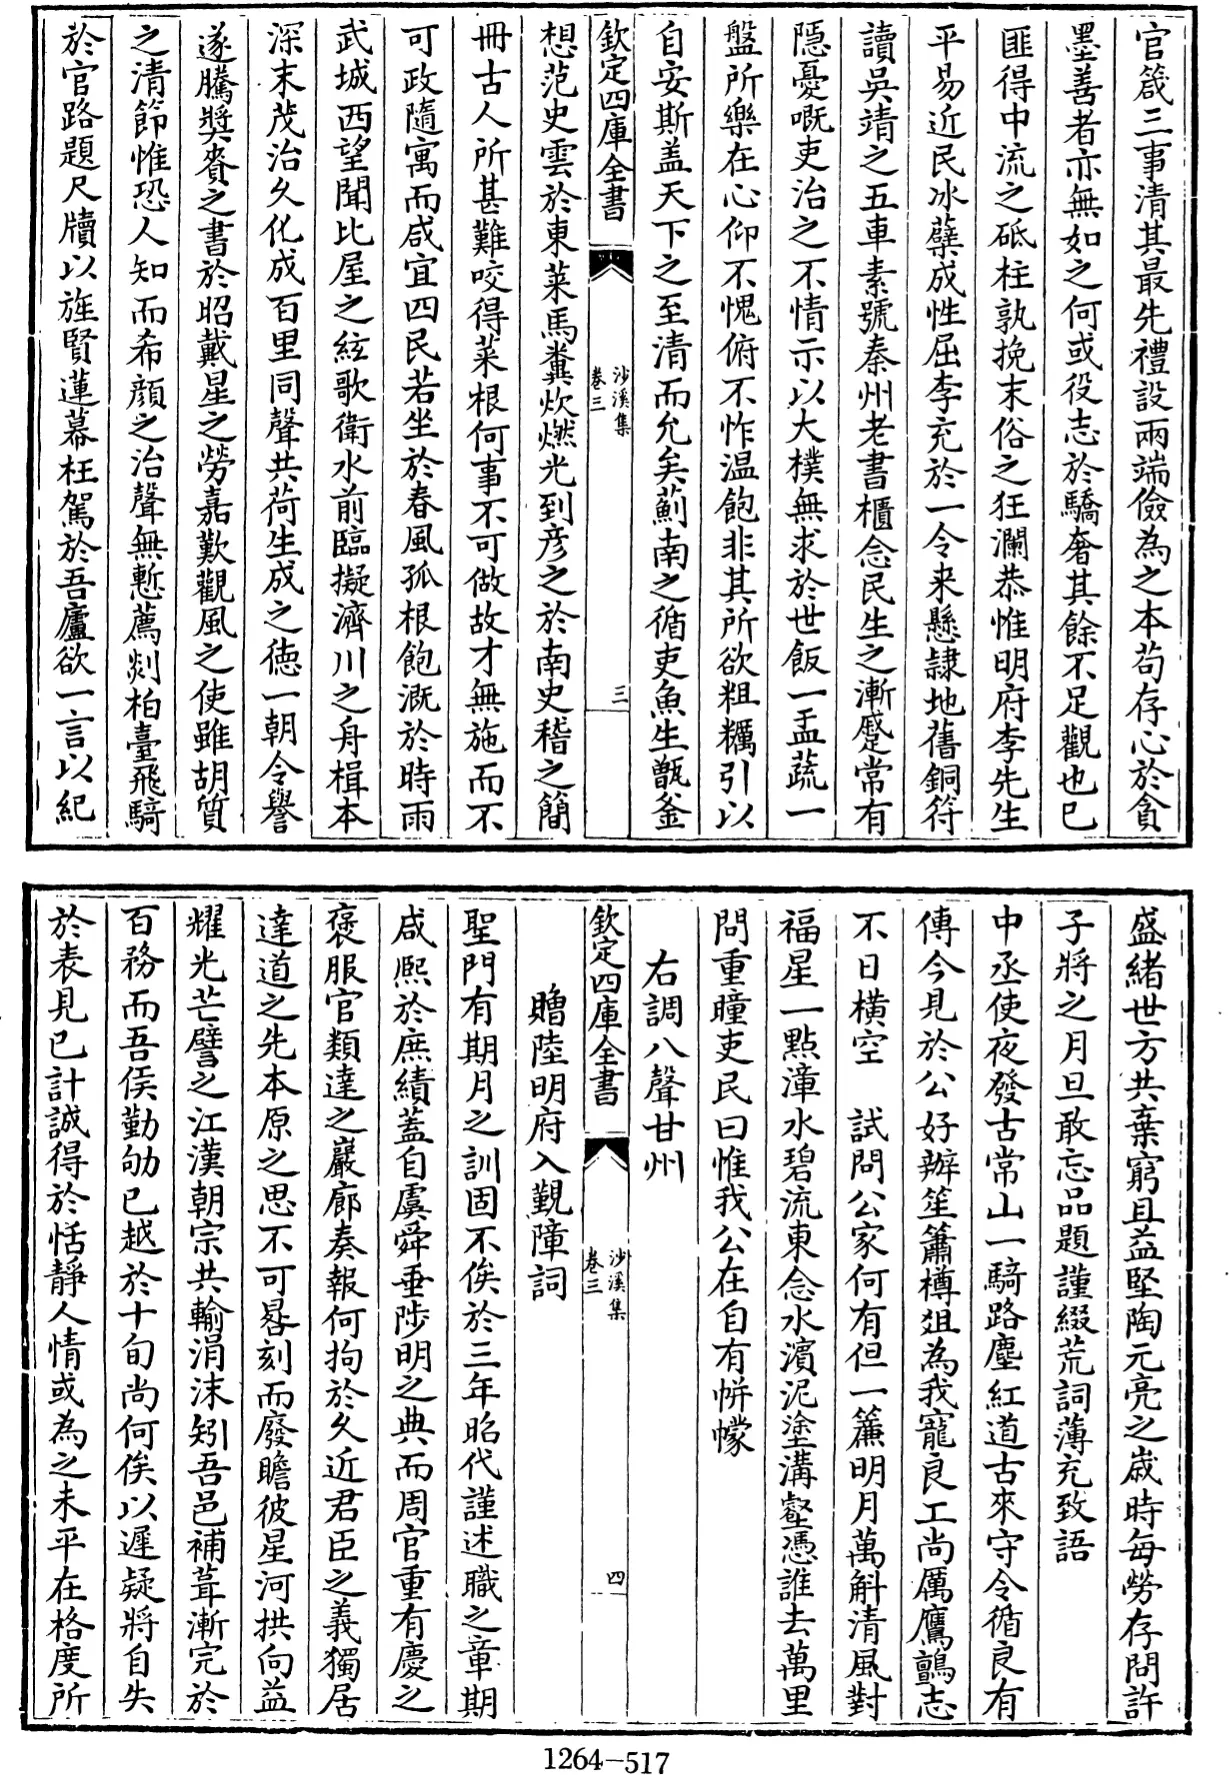 官箴三事清其最先禮設兩端儉為之本苟存心於貪
墨善者亦無如之何或役志於驕奢其餘不足觀也已
匪得中流之砥柱孰挽末俗之狂瀾恭惟明府李先生
平易近民冰蘗成性屈李充於一令来懸隷地舊銅符
讀吳靖之五車素號秦州老書櫃念民生之漸蹙常有
隠憂嘅吏治之不情示以大樸無求於世飯一盂蔬一
盤所樂在心仰不愧俯不怍温飽非其所欲粗糲引以
自安斯盖天下之至清而允矣薊南之循吏魚生甑釜
欽定四庫全書
沙溪集
卷三
三
想范史雲於東萊馬糞炊燃光到彦之於南史稽之簡
冊古人所甚難咬得菜根何事不可做故才無施而不
可政隨寓而咸宜四民若坐於春風孤根飽溉於時雨
武城西望聞比屋之絃歌衛水前臨擬濟川之舟楫本
深末茂治久化成百里同聲共荷生成之德一朝令譽
遂騰奬賚之書於昭戴星之勞嘉歎觀風之使雖胡質
之清節惟恐人知而希顔之治聲無慙薦剡柏臺飛騎
於官路題尺牘以旌賢蓮幕枉駕於吾廬欲一言以紀
盛緒世方共棄窮且益堅陶元亮之歳時每勞存問許
子將之月旦敢忘品題謹綴荒詞薄充致語
中丞使夜發古常山一騎路塵紅道古來守令循良有
傳今見於公好辦笙簫樽俎為我寵良工尚厲鷹鸇志
不日横空　試問公家何有但一簾明月萬斛清風對
福星一點漳水碧流東念水濱泥塗溝壑憑誰去萬里
問重瞳吏民曰惟我公在自有帡幪
右調八聲甘州
欽定四庫全書
沙溪集
卷三
四
贈陸明府入覲障詞
聖門有期月之訓固不俟於三年昭代謹述職之章期
咸熙於庶績蓋自虞舜垂陟明之典而周官重有慶之
褒服官類達之巖廊奏報何拘於久近君臣之義獨居
達道之先本原之思不可晷刻而廢瞻彼星河拱向益
耀光芒譬之江漢朝宗共輸涓沫矧吾邑補葺漸完於
百務而吾侯勤劬已越於十旬尚何俟以遲疑將自失
於表見已計誠得於恬靜人情或為之未平在格度所
1264-517